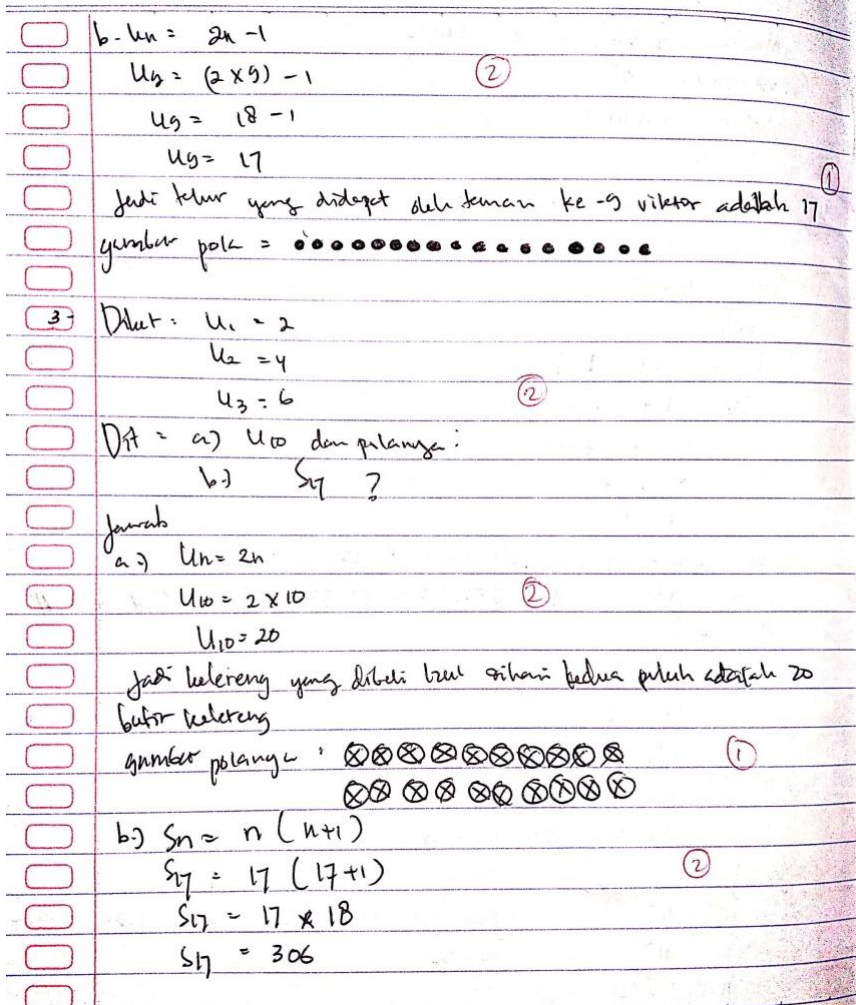 b. Un = 2n - 1
U9 = (2 x 9) - 1 ②
U9 = 18 - 1
U9 = 17
①
Jadi telur yang didapat oleh teman ke-9 viktor adalah 17
gambar pola =
3. Diket: U1 = 2
U2 = 4
U3 = 6 ②
Dit = a) U10 dan polanya:
b.) S17 ?
Jawab
a.) Un = 2n
U10 = 2 x 10 ②
U10 = 20
Jadi kelereng yang dibeli dihari kedua puluh adalah 20
butir kelereng
gambar polanya : ①
b.) Sn = n (n+1)
S17 = 17 (17+1) ②
S17 = 17 x 18
S17 = 306